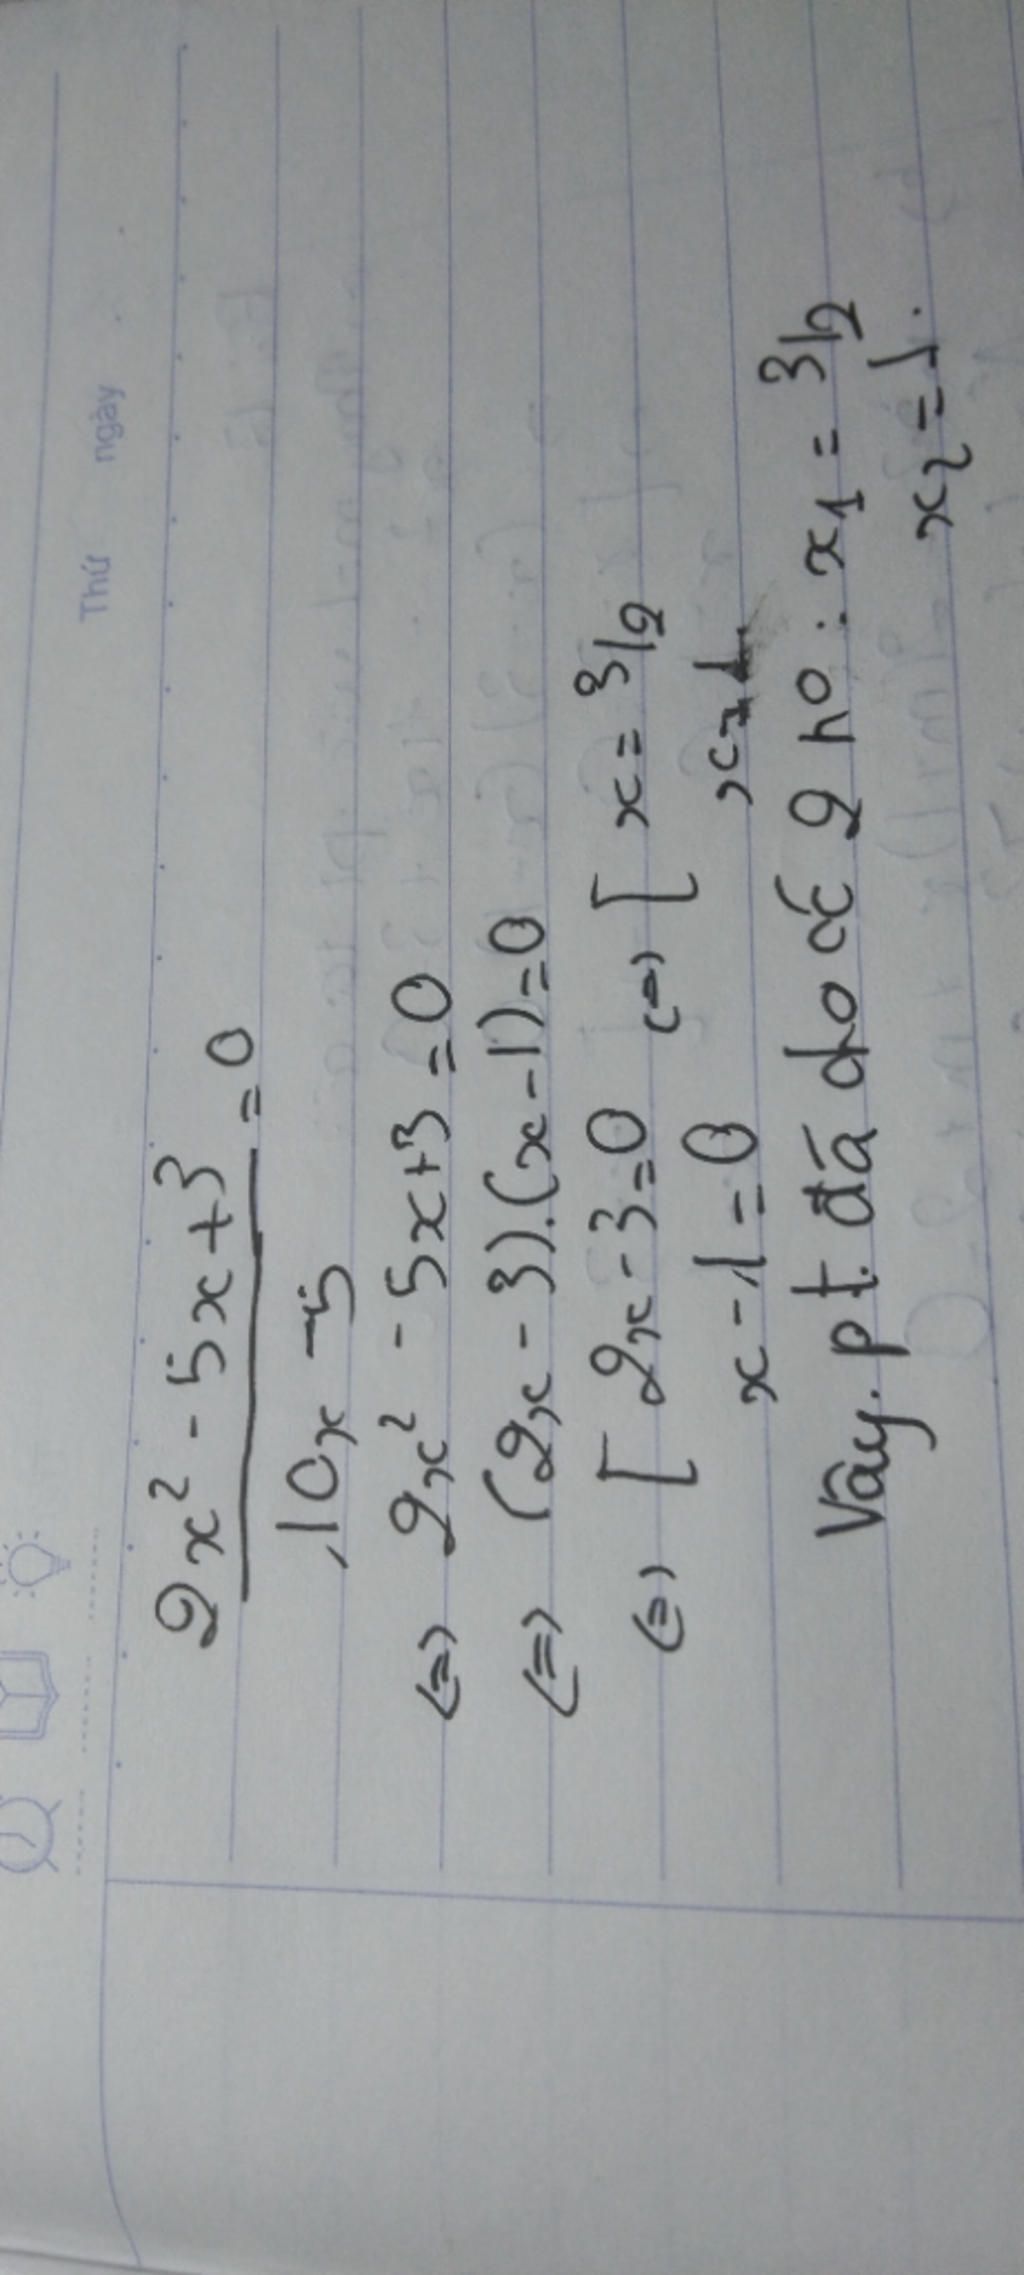 Thứ ngày
2x² - 5x + 3 = 0
10x - 5
<=> 2x² - 5x + 3 = 0
<=> (2x - 3).(x - 1) = 0
<=> [ 2x - 3 = 0 <=> [ x = 3/2
x - 1 = 0 x = 1
Vậy. pt đã cho có 2 no : x1 = 3/2
x2 = 1.